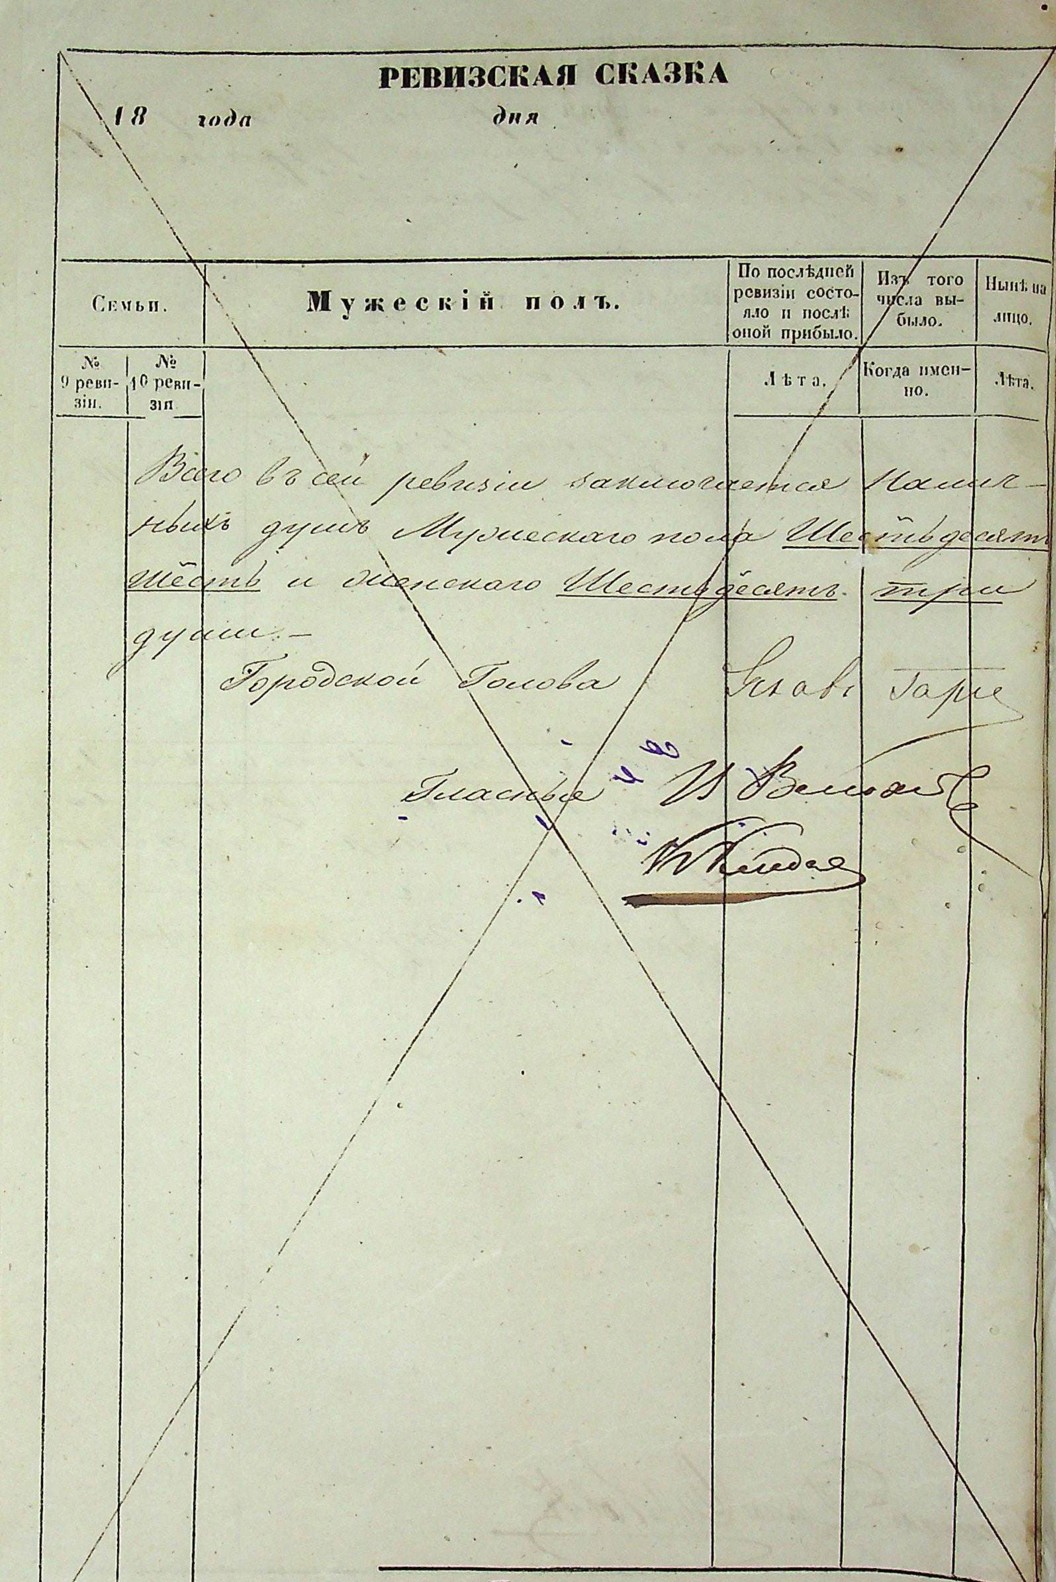 РЕВИЗСКАЯ СКАЗКА
18 года дня
Семьи.
Мужескій полъ.
По послѣдней ревизіи состо-
яло и послѣ оной прибыло.
Изъ того числа вы-
было.
Нынѣ на лицо.
№ 9 реви-
зіи.
№ 10 реви-
зіи
Лѣта.
Когда имен-
но.
Лѣта.
Всего въ сей ревизіи заключается Налич-
ныхъ душъ Мужескаго пола Шестьдесятъ
шесть и женскаго Шестьдесятъ три
души.—
Городской Голова
Гласные